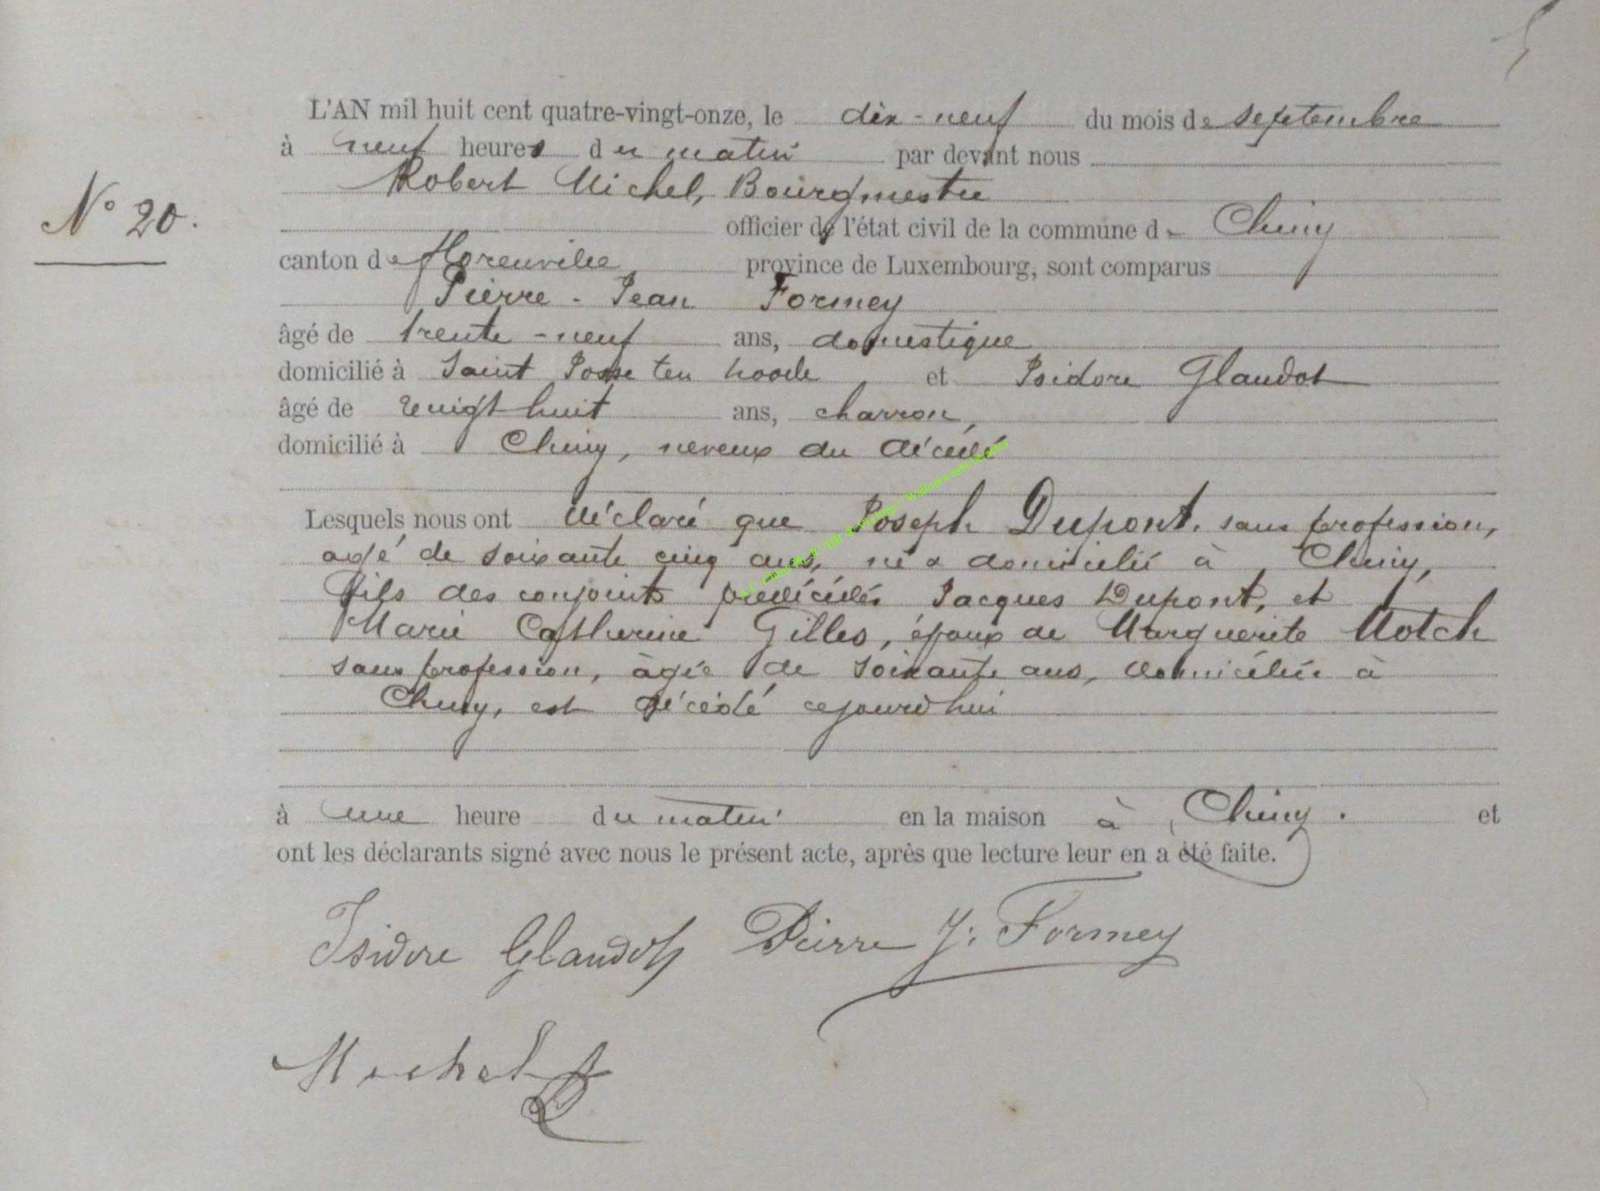 L'AN mil huit cent quatre-vingt-onze, le dix-neuf du mois de septembre
à neuf heures du matin par devant nous
N° 20.
Robert Michel, Bourgmestre
officier de l'état civil de la commune de Chiny
canton de Florenville province de Luxembourg, sont comparus
Pierre-Jean Formey
âgé de trente-neuf ans, domestique
domicilié à Saint Josse ten noode et Isidore Glaudot
âgé de vingt huit ans, charron,
domicilié à Chiny, neveux du décédé
Lesquels nous ont déclaré que Joseph Dupont, sans profession,
agé de soixante cinq ans, né & domicilié à Chiny,
fils des conjoints prédécédés Jacques Dupont, et
Marie Catherine Gilles, époux de Marguerite Motch
sans profession, âgée de soixante ans, domiciliée à
Chiny, est décédé cejourd'hui
à une heure du matin en la maison à Chiny. et
ont les déclarants signé avec nous le présent acte, après que lecture leur en a été faite.
Isidore Glaudot Pierre J. Formey
Michel